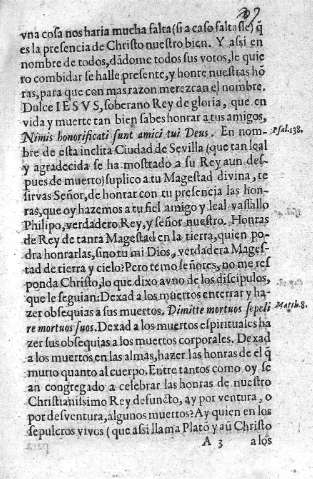 vna cosa nos haria mucha falta (si a caso faltasse) q̃
es la presencia de Christo nuestro bien. Y assi en
nombre de todos, dãdome todos sus votos, le quie
ro combidar se halle presente, y honre nuestras hõ
ras, para que con mas razon merezcan el nombre.
Dulce IESVS, soberano Rey de gloria, que en
vida y muerte tan bien sabes honrar a tus amigos,
Nimis honorificati sunt amici tui Deus. En nom-
Psal. 138.
bre de esta inclita Ciudad de Sevilla (que tan leal
y agradecida se ha mostrado a su Rey aun des-
pues de muerto) suplico a tu Magestad divina, te
sirvas Señor, de honrar con tu presencia las hon-
ras, que oy hazemos a tu fiel amigo y leal vassallo
Philipo, verdadero Rey, y señor nuestro. Honras
de Rey de tanta Magestad en la tierra, quien po-
dra honrarlas, sino tu mi Dios, verdadera Mages-
tad de tierra y cielo? Pero temo señores, no me res-
ponda Christo, lo que dixo a vno de los discipulos,
que le seguian: Dexad a los muertos enterrar y ha-
zer obsequias a sus muertos. Dimitte mortuos sepeli-
Matth. 8.
re mortuos suos. Dexad a los muertos espirituales ha
zer sus obsequias a los muertos corporales. Dexad
a los muertos en las almas, hazer las honras de el q̃
murio quanto al cuerpo. Entre tantos como oy se
an congregado a celebrar las honras de nuestro
Christianissimo Rey defuncto, ay por ventura, o
por desventura, algunos muertos? Ay quien en los
sepulcros vivos (que assi llama Platõ y aũ Christo
A 3
a los